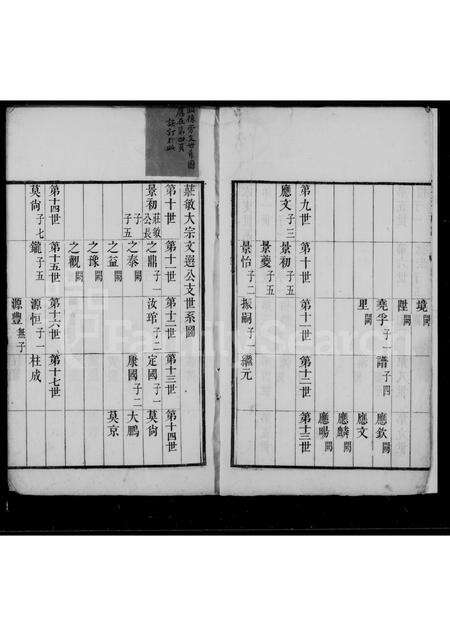 境闕
陞闕
堯孚子一 譜子四 應欽闕
里闕 應文
應麟闕
應暘闕
第九世 第十世 第十一世 第十二世 第十三世
應文子三 景初子五
景夔子五
景怡子二 振嗣子一 繼元
莊敏大宗文選公支世系圖
第十世 第十一世 第十二世 第十三世 第十四世
景初莊敏公長子 之鼎子一 汝琯子二 定國子一 莫尙
子五 之泰闕 康國子二 大鵬
之益闕 莫京
之豫闕
之觀闕
第十四世 第十五世 第十六世 第十七世
莫尙子七 鑨子五 源恒子一 柱成
源豐無子